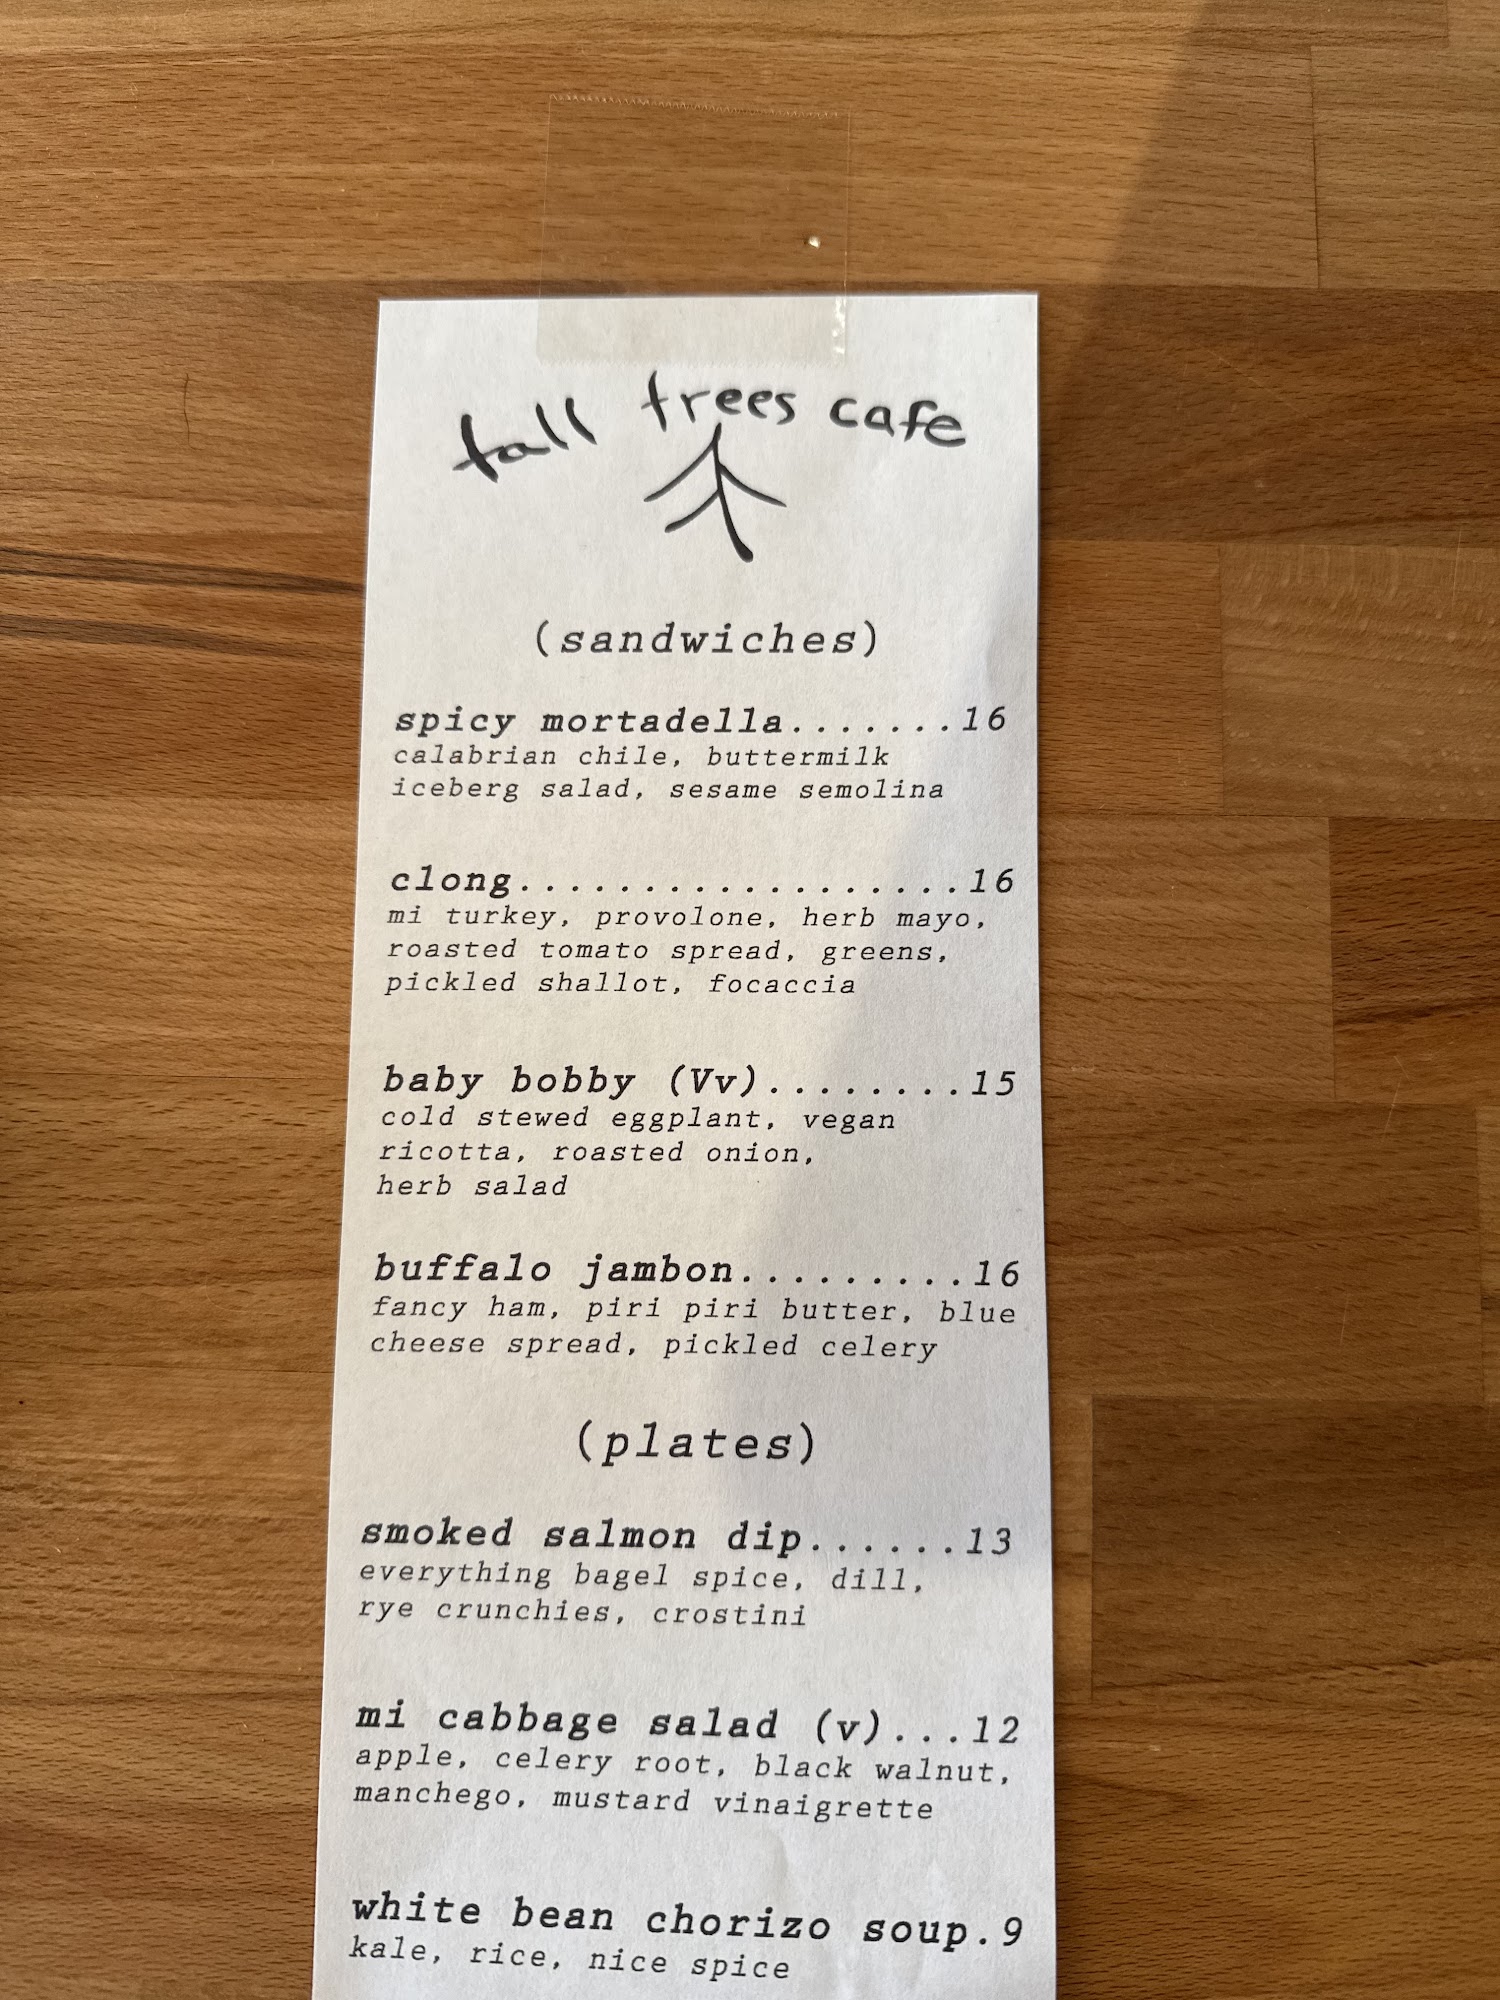 tall trees cafe
(sandwiches)
spicy mortadella.......16
calabrian chile, buttermilk
iceberg salad, sesame semolina
clong..................16
mi turkey, provolone, herb mayo,
roasted tomato spread, greens,
pickled shallot, focaccia
baby bobby (Vv)........15
cold stewed eggplant, vegan
ricotta, roasted onion,
herb salad
buffalo jambon.........16
fancy ham, piri piri butter, blue
cheese spread, pickled celery
(plates)
smoked salmon dip......13
everything bagel spice, dill,
rye crunchies, crostini
mi cabbage salad (v)...12
apple, celery root, black walnut,
manchego, mustard vinaigrette
white bean chorizo soup.9
kale, rice, nice spice